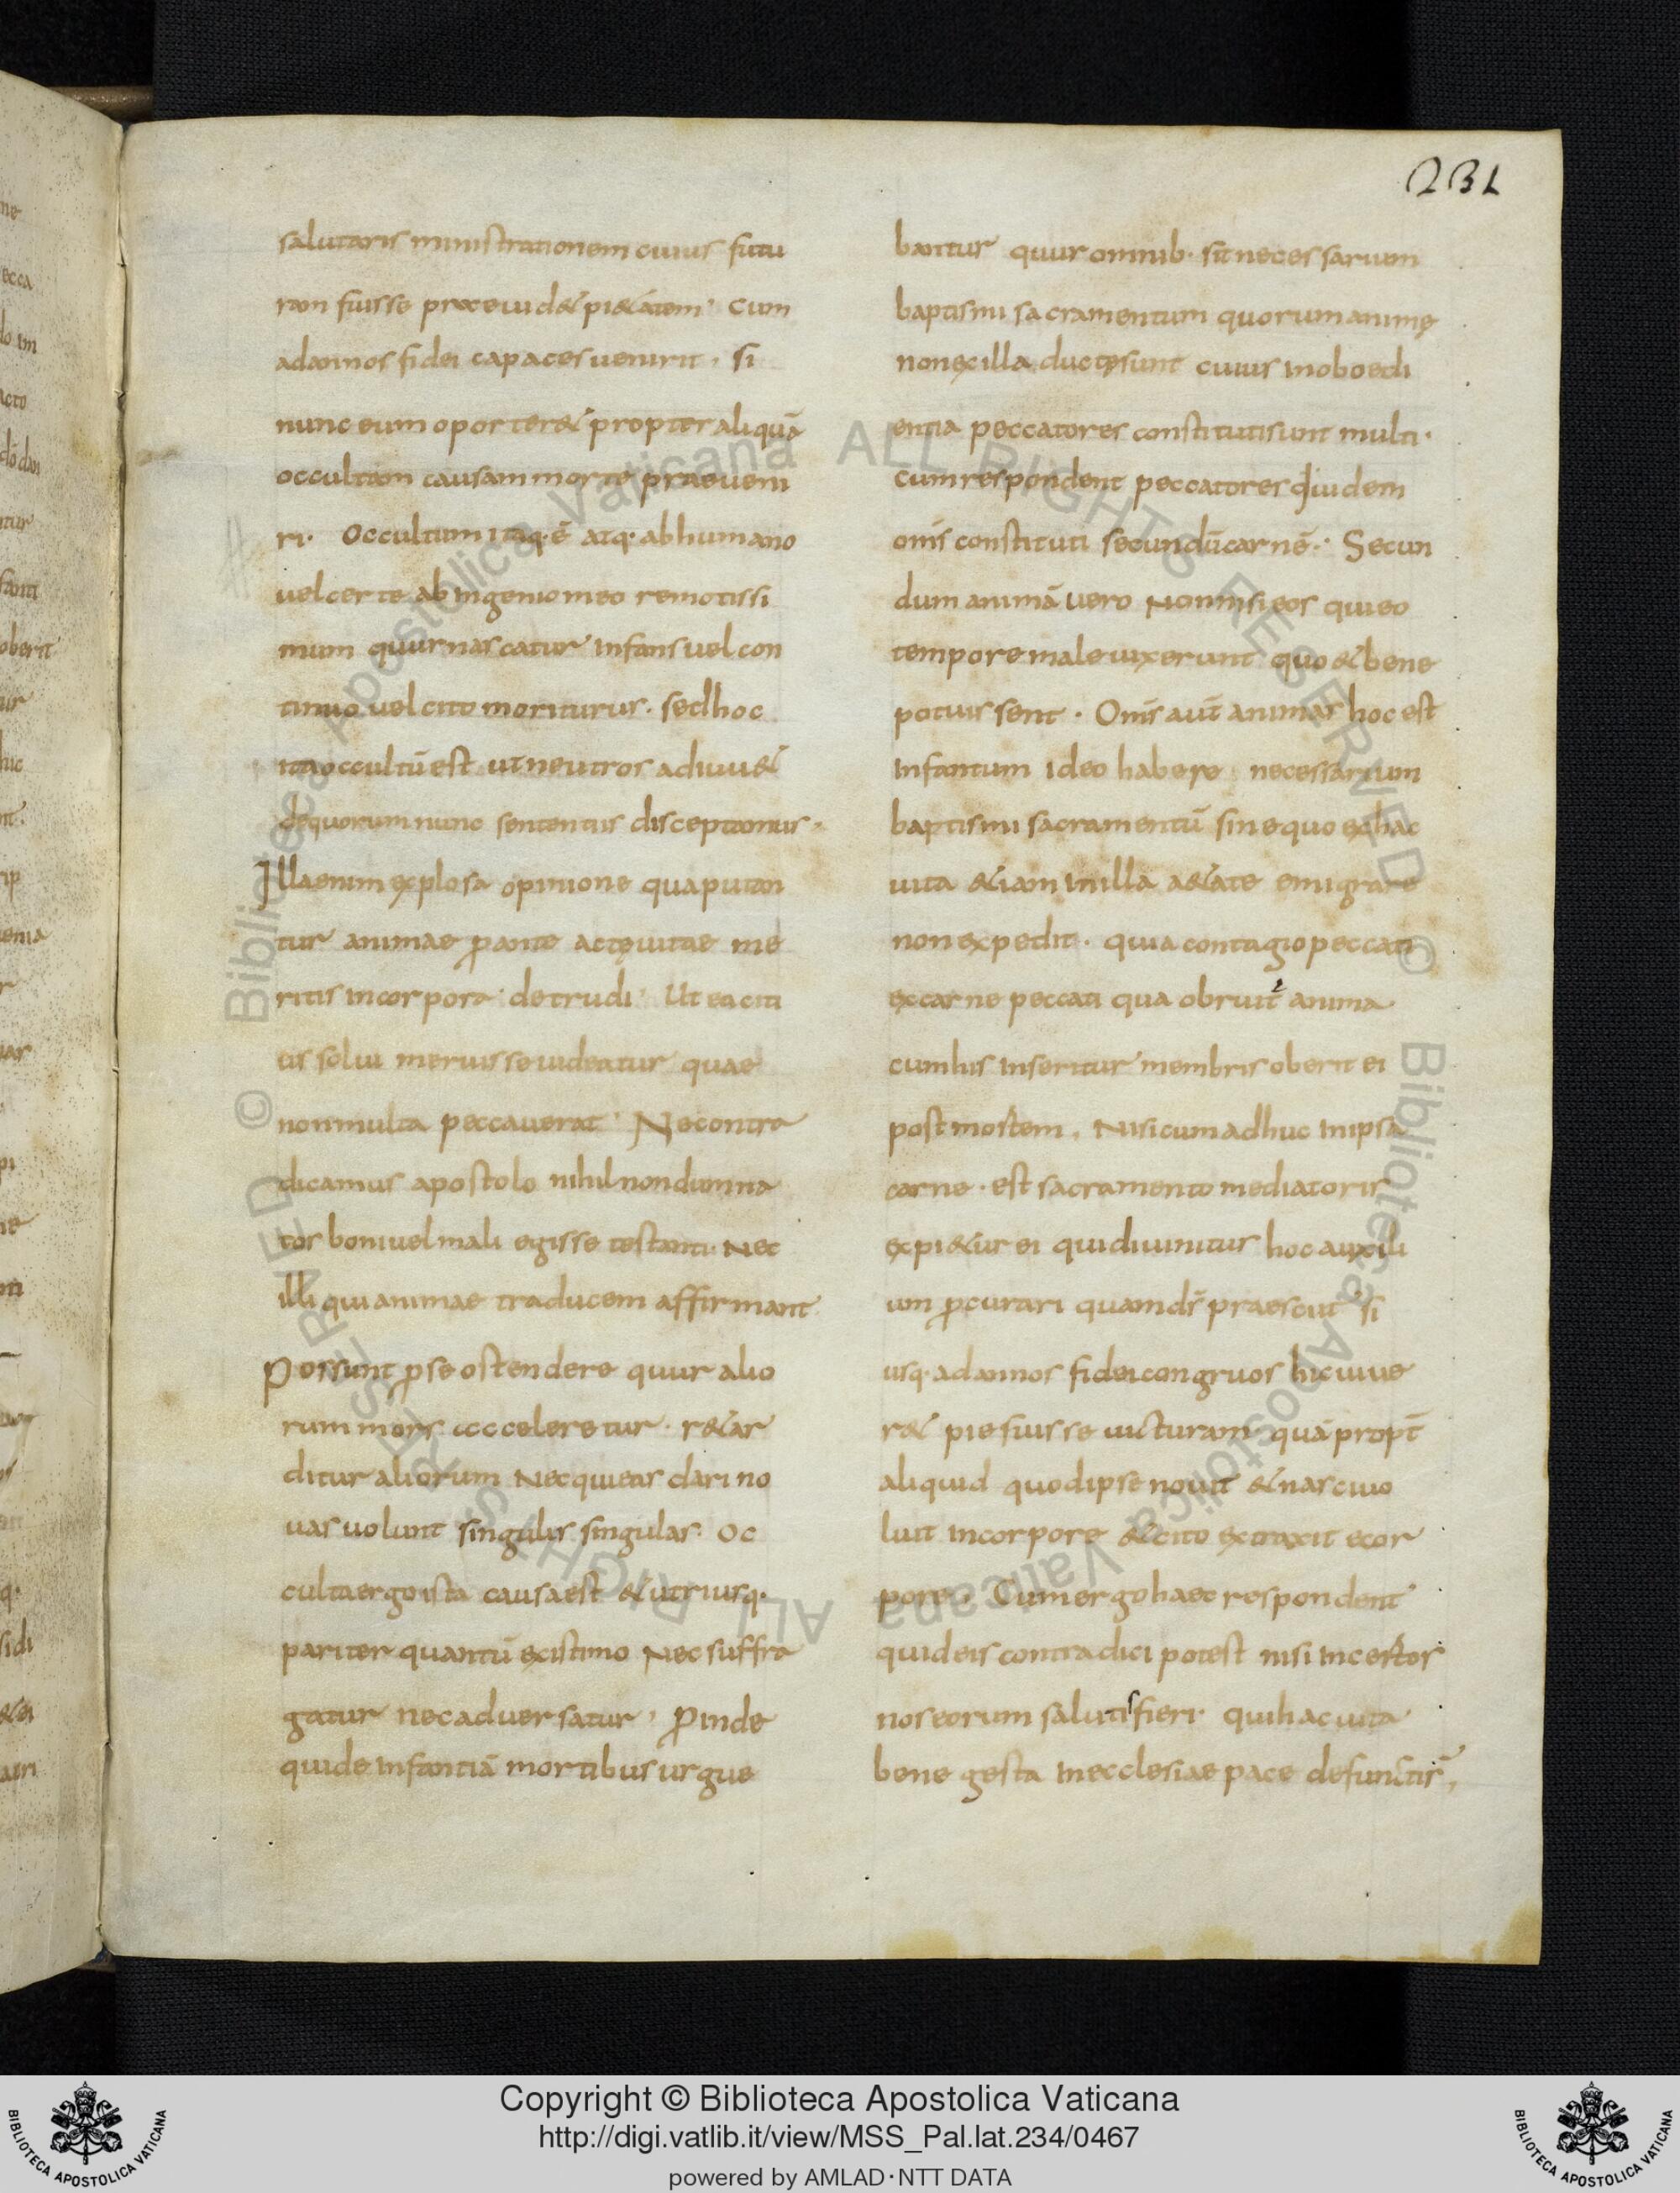 231
salutaris ministrationem cuius futu
ram fuisse praeuid& pi&atem· Cum
adannos fidei capaces uenirit, si
nunc eum oporter& propter aliquā
occultam causam morte praeueni
ri· Occultum itaq· ē atq· abhumano
uelcerte ab ingenio meo remotissi
mum quur nascatur infans uel con
tinuo uel cito moriturus· sedhoc
ita occultū est ut neutros adiuu&
dequorum nunc sententiis disceptamus·
Illaenim explosa opinione qua putan
tur animae pante actę uitae me
ritis incorpora detrudi· Ut ea citi
tis solui meruisse uideatur quae
non multa peccauerat· Necontra
dicamus apostolo nihil nondumna
tos boni uel mali egisse testanti· Nec
illi qui animae traducem affirmant
Possunt pse ostendere quur alio
rum mors acceleretur· r&ar
ditur aliorum Necquieas clari no
uas uolunt singulis singulas· Oc
culta ergo ista causa est &utriusq·
pariter quantū existimo Nec suffra
gatur nec aduersatur, Pinde
quide infantiā mortibus urgue
bantur quur omnib· sit necessarium
baptismi sacramentum quorum animę
non exilla ductę sunt cuius inoboedi
entia peccatores constituti sunt multi·
cum respondent peccatores quidem
omīs constituti secundū carnē·· Secun
dum animā vero Nonnisi eos qui eo
tempore male uixerunt quo & bene
potuissent· Omīs aut̄ animas hoc est
Infantum ideo habere necessarium
baptismi sacramentū sine quo exhac
uita &iam in illa a&ate emigrare
non expedit· quia contagio peccati
excarne peccati qua obruit̄ anima
cum his inseritur membris oberit ei
post mortem, Nisi cum adhuc in ipsa
carne· est sacramento mediatoris
expi&ur ei quidiuinitus hoc auxili
um pcurari quam dī praesciit si
usq· adannos fidei congruos hic uiue
r& pie fuisse uicturam quā propt̄
aliquid quod ipse nouit & nasci uo
luit incorpore & cito extraxit ecor
pore, Cum ergo haec respondent
quid eis contradici potest nisi incertos
nos eorum salutis fieri· qui hac uita
bene gesta inecclesiae pace defunctis,
Copyright © Biblioteca Apostolica Vaticana
http://digi.vatlib.it/view/MSS_Pal.lat.234/0467
powered by AMLAD·NTT DATA
BIBLIOTECA APOSTOLICA VATICANA
BIBLIOTECA APOSTOLICA VATICANA